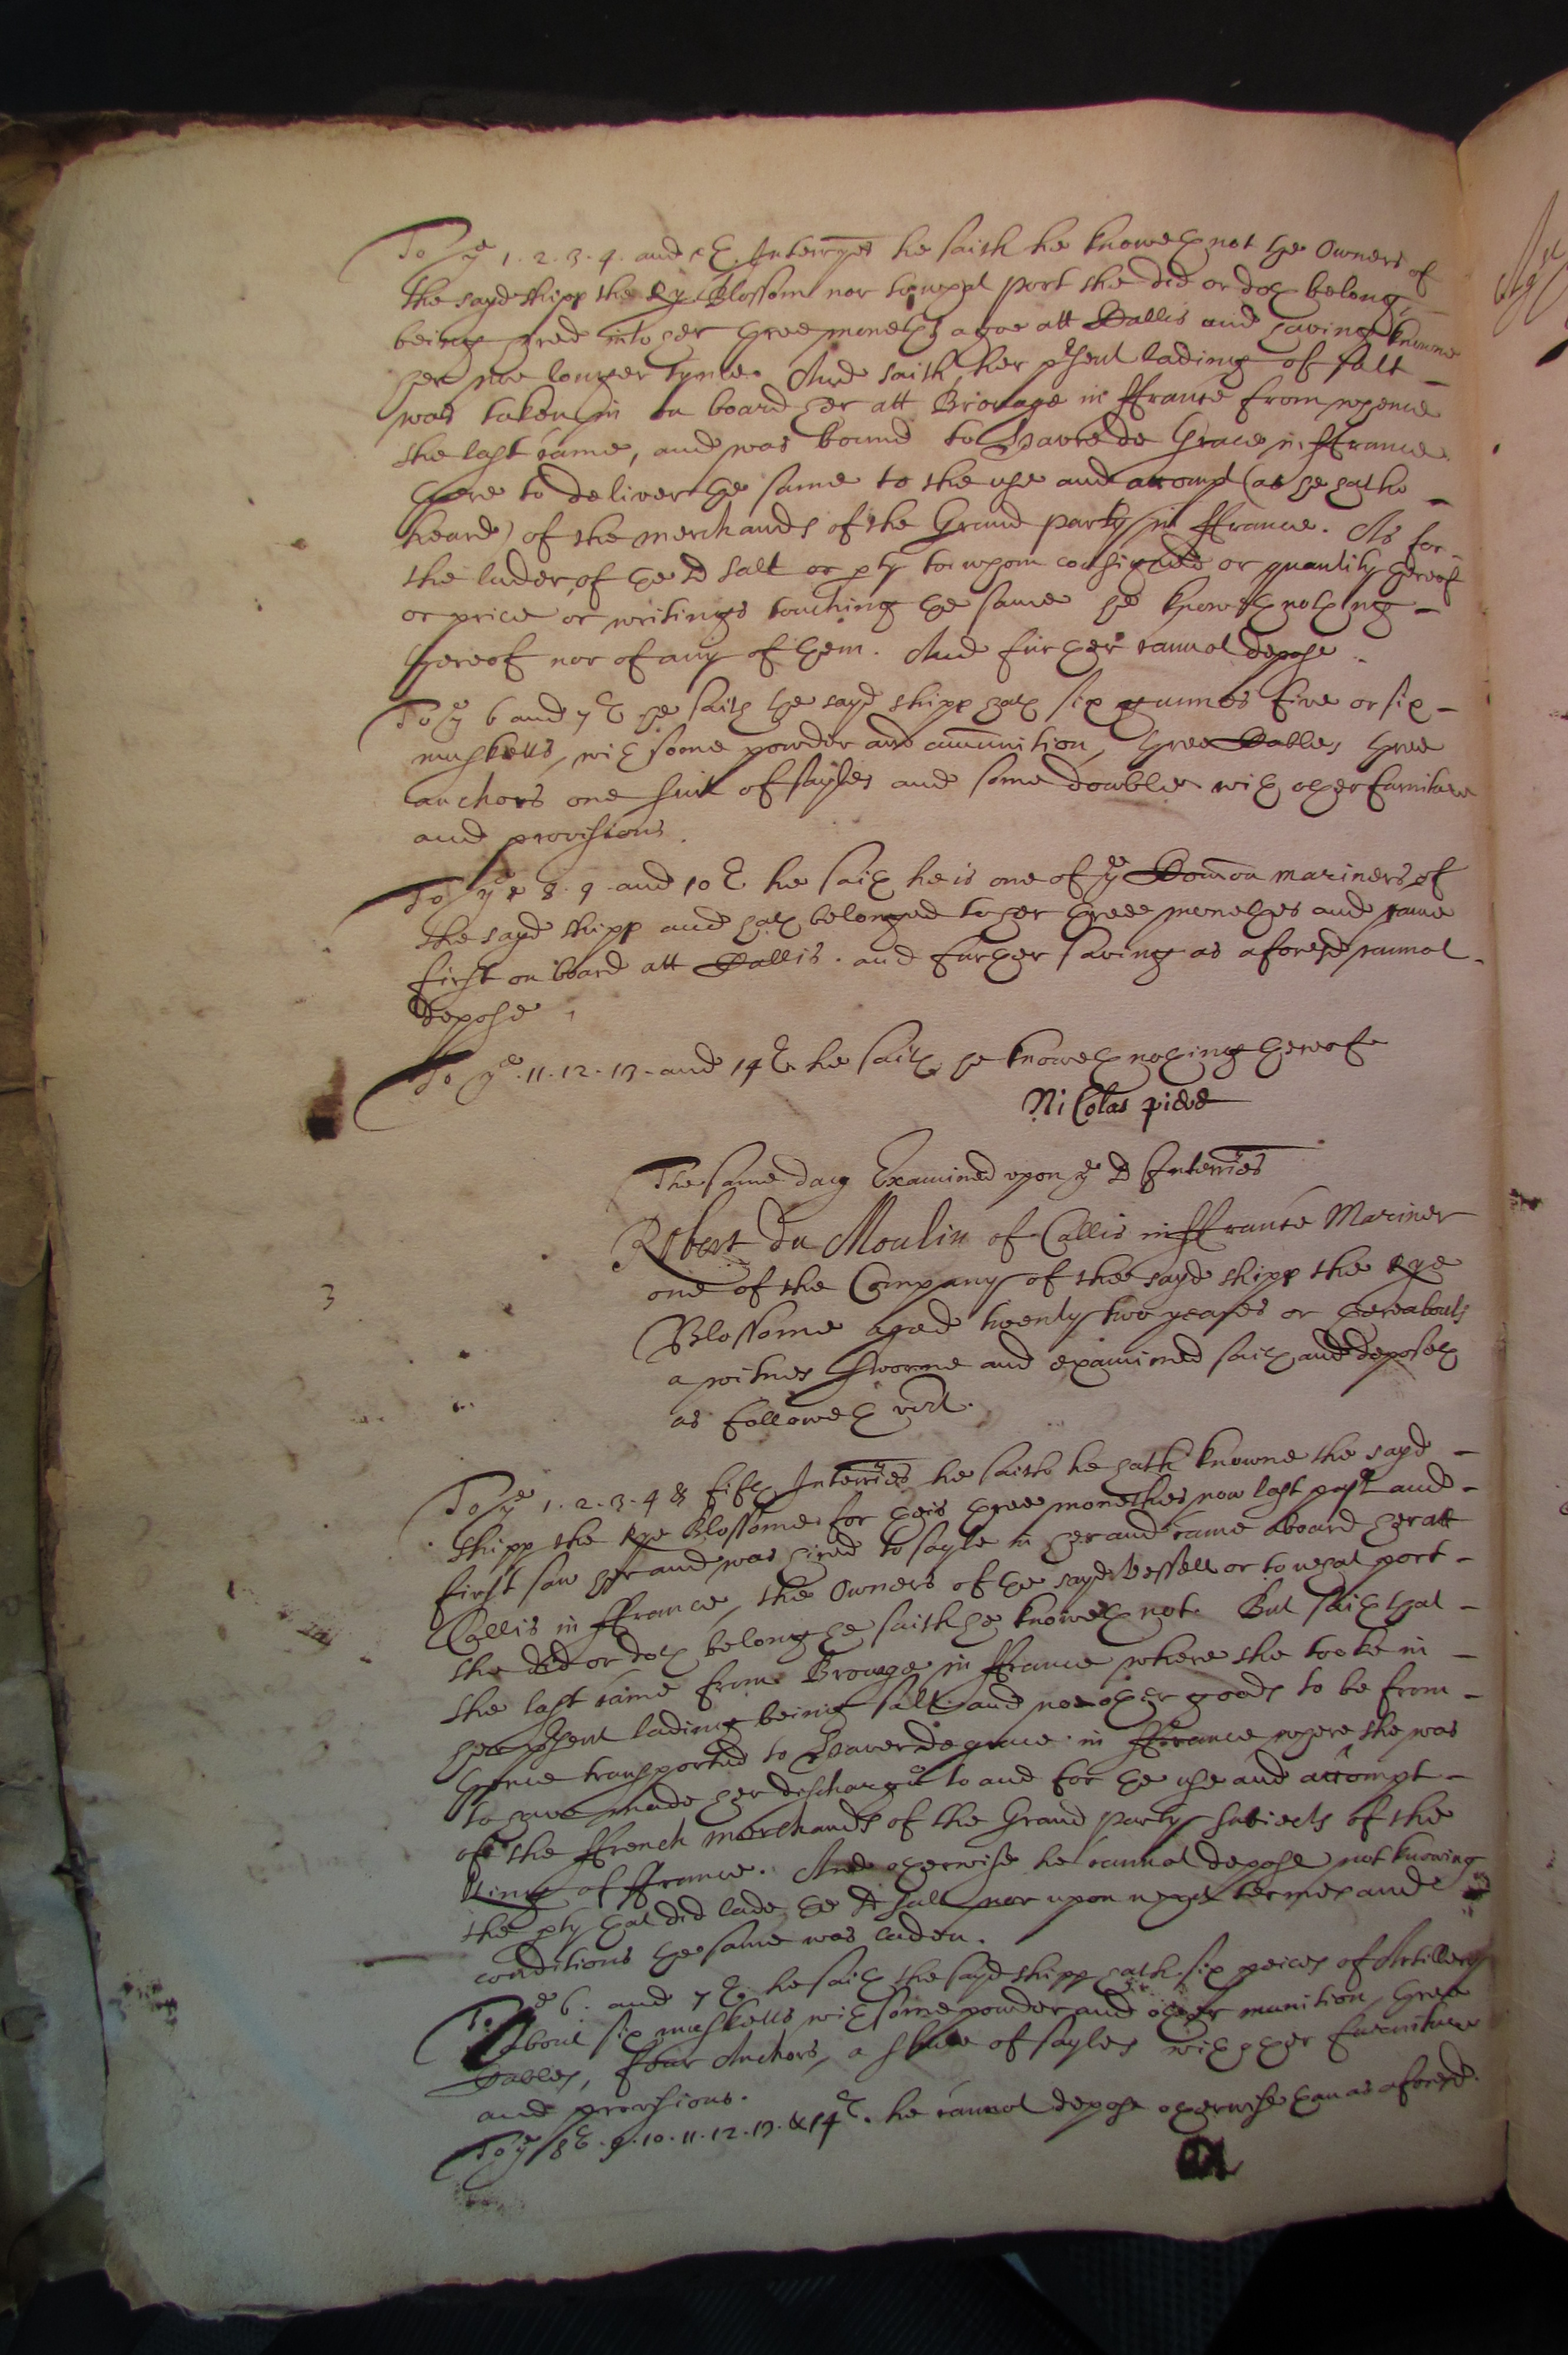 To ye 1. 2. 3. 4. and 5th. Interryes he saith he knoweth not the Owners of
the sayd shipp the Rye Blossom nor to what port she did or doth belong,
being hired into her three moneths agoe att Callis and having knowne
her noe longer tyme. And saith her pñsent lading of salt -
was taken in on board her att Brouage in ffrance from whence
she last came, and was bound to Havre de Grace in ffrance
there to deliver the same to the use and accompt (as he hath -
heard) of the merchands of the Grand party in ffrance. As for -
the lader, of the sd salt or pty to whom consigned or quantity thereof
or price or writings touching the same he knoweth nothing -
thereof nor of any of them. And further cannot depose.
To ye 6 and 7th he saith the sayd shipp hath six gunnes five or six -
musketts, with some powder and amunition, three Cables three
anchors one suit of sayles and some double with other furniture
and provisions.
To ye 8. 9. and 10th he saith he is one of ye Com̃on mariners of
the sayd shipp and hath belonged to her three monethes and came
first on board att Callis. and further saving as aforesd cannot -
depose.
To ye. 11. 12. 13. and 14th. he saith he knoweth nothing thereof
Nicolas pieve
The same day Examined upon ye sd Interries
Robert du Moulin of Callis in ffrance Mariner
one of the Company of the sayd shipp the Rye
Blossome aged twenty two yeares or thereabouts
a witnes sworne and examined saith and deposeth
as followeth vizt.
3
To ye 1. 2. 3. 4 & fifth Interries he saith he hath knowne the sayd -
shipp the Rye Blossome for theis three monethes now last past and -
first saw her and was hired to sayle in her and came aboard her att
Callis in ffrance, the Owners of the sayd Vessell or to what port -
she did or doth belong he saith he knoweth not. But saith that -
she last came from Brouage in ffrance where she tooke in -
her pñsent lading being salt and noe other goods to be from -
thence transported to Haver de grace in ffrance where she was
to have made her discharge to and for the use and accompt -
of the ffrench merchands of the Grand party subiects of the
King of ffrance. And otherwise he cannot depose not knowing
the pty that did lade the sd salt nor upon what termes and
conditions the same was laden.
To ye 6. and 7th. he saith the sayd shipp hath six peices of Artillery
about six musketts with some powder and other munition, three
Cables, four Anchors, a suite of sayles with other furniture
and provisions.
To ye 8th. 9. 10. 11. 12. 13. & 14th. he cannot depose otherwise than as aforesd.